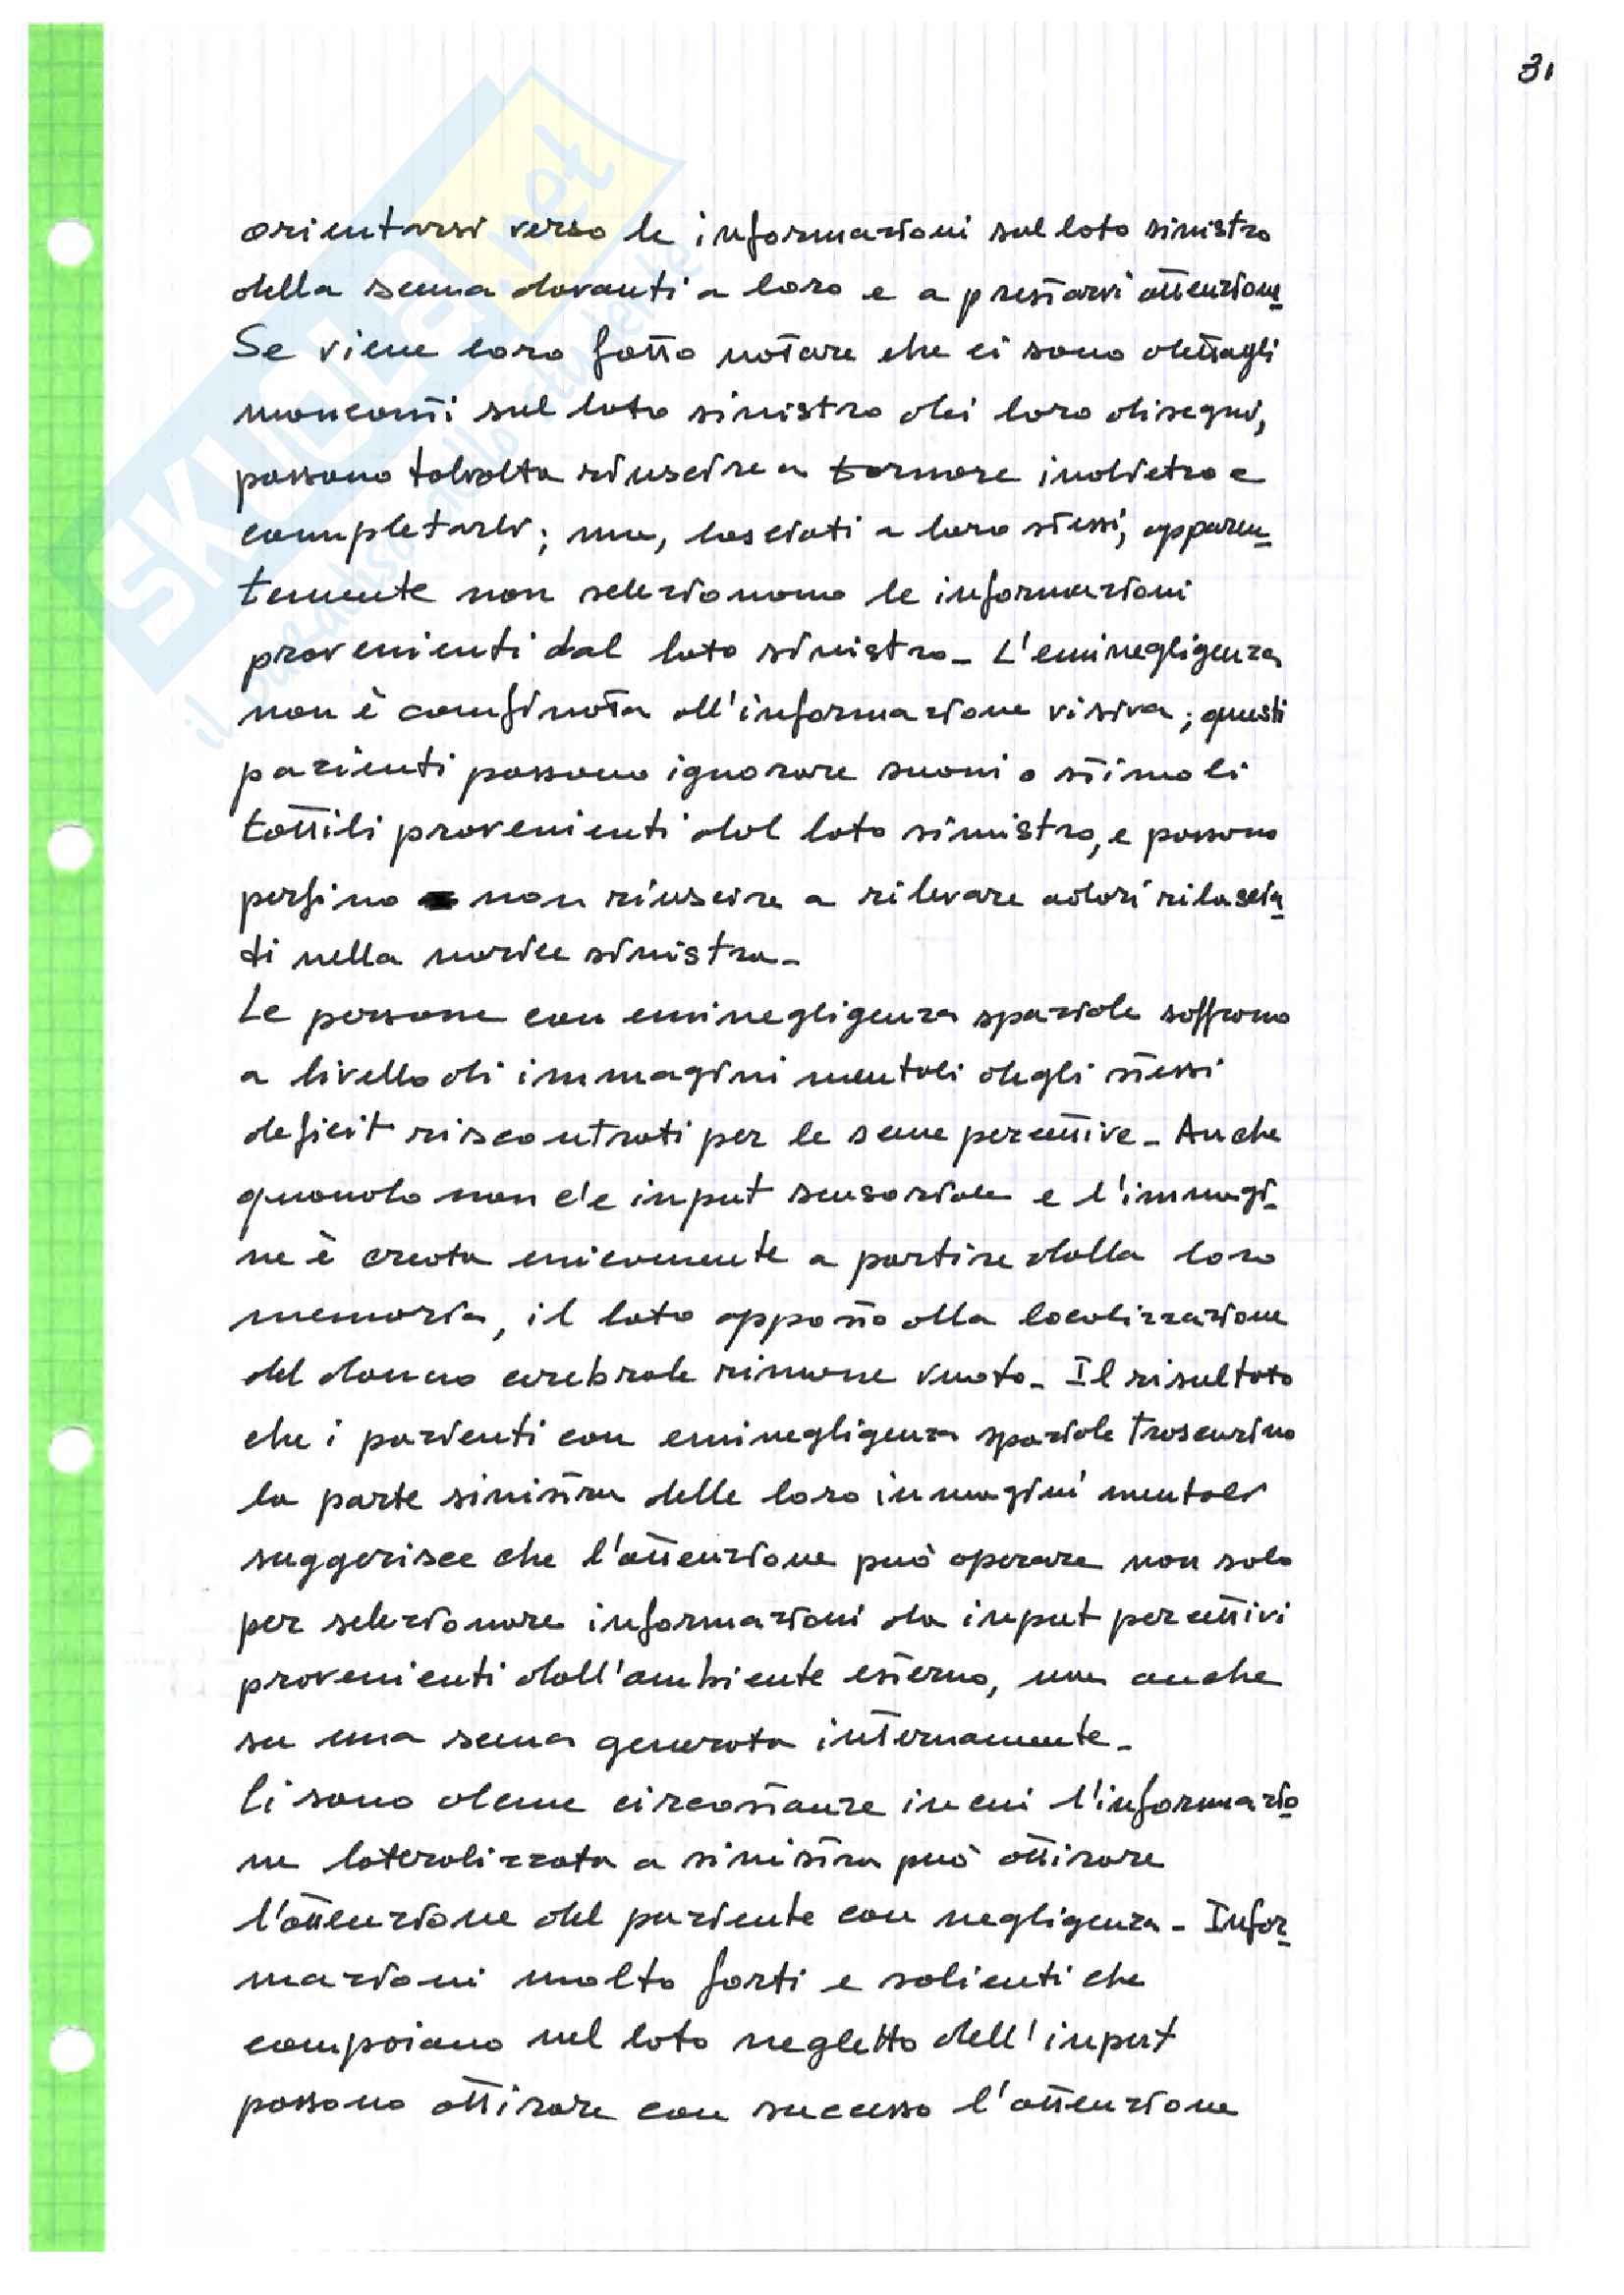 31
orientarsi verso le informazioni sul lato sinistro
della scena davanti a loro e a prestarvi attenzione
Se viene loro fatto notare che ci sono dettagli
mancanti sul lato sinistro dei loro disegni,
possono talvolta riuscire a tornare indietro e
completarli; ma, lasciati a loro stessi, apparen_
temente non selezionano le informazioni
provenienti dal lato sinistro_ L'eminegligenza
non è confinata all'informazione visiva; questi
pazienti possono ignorare suoni o stimoli
tattili provenienti dal lato sinistro, e possono
perfino non riuscire a rilevare odori rilascia
ti nella narice sinistra_
Le persone con eminegligenza spaziale soffrono
a livello di immagini mentali degli stessi
deficit riscontrati per le scene percettive_ Anche
quando non c'e input sensoriale e l'immagi_
ne è creata unicamente a partire dalla loro
memoria, il lato opposto alla localizzazione
del danno cerebrale rimane vuoto_ Il risultato
che i pazienti con eminegligenza spaziale trascurino
la parte sinistra delle loro immagini mentali
suggerisce che l'attenzione può operare non solo
per selezionare informazioni da input percettivi
provenienti dall'ambiente esterno, ma anche
su una scena generata internamente_
Ci sono alcune circostanze in cui l'informazio
ne lateralizzata a sinistra può attirare
l'attenzione del paziente con negligenza_ Infor_
mazioni molto forti e salienti che
compaiano nel lato negletto dell'input
possono attirare con successo l'attenzione
SKUOLA.net
il paradiso dello studente